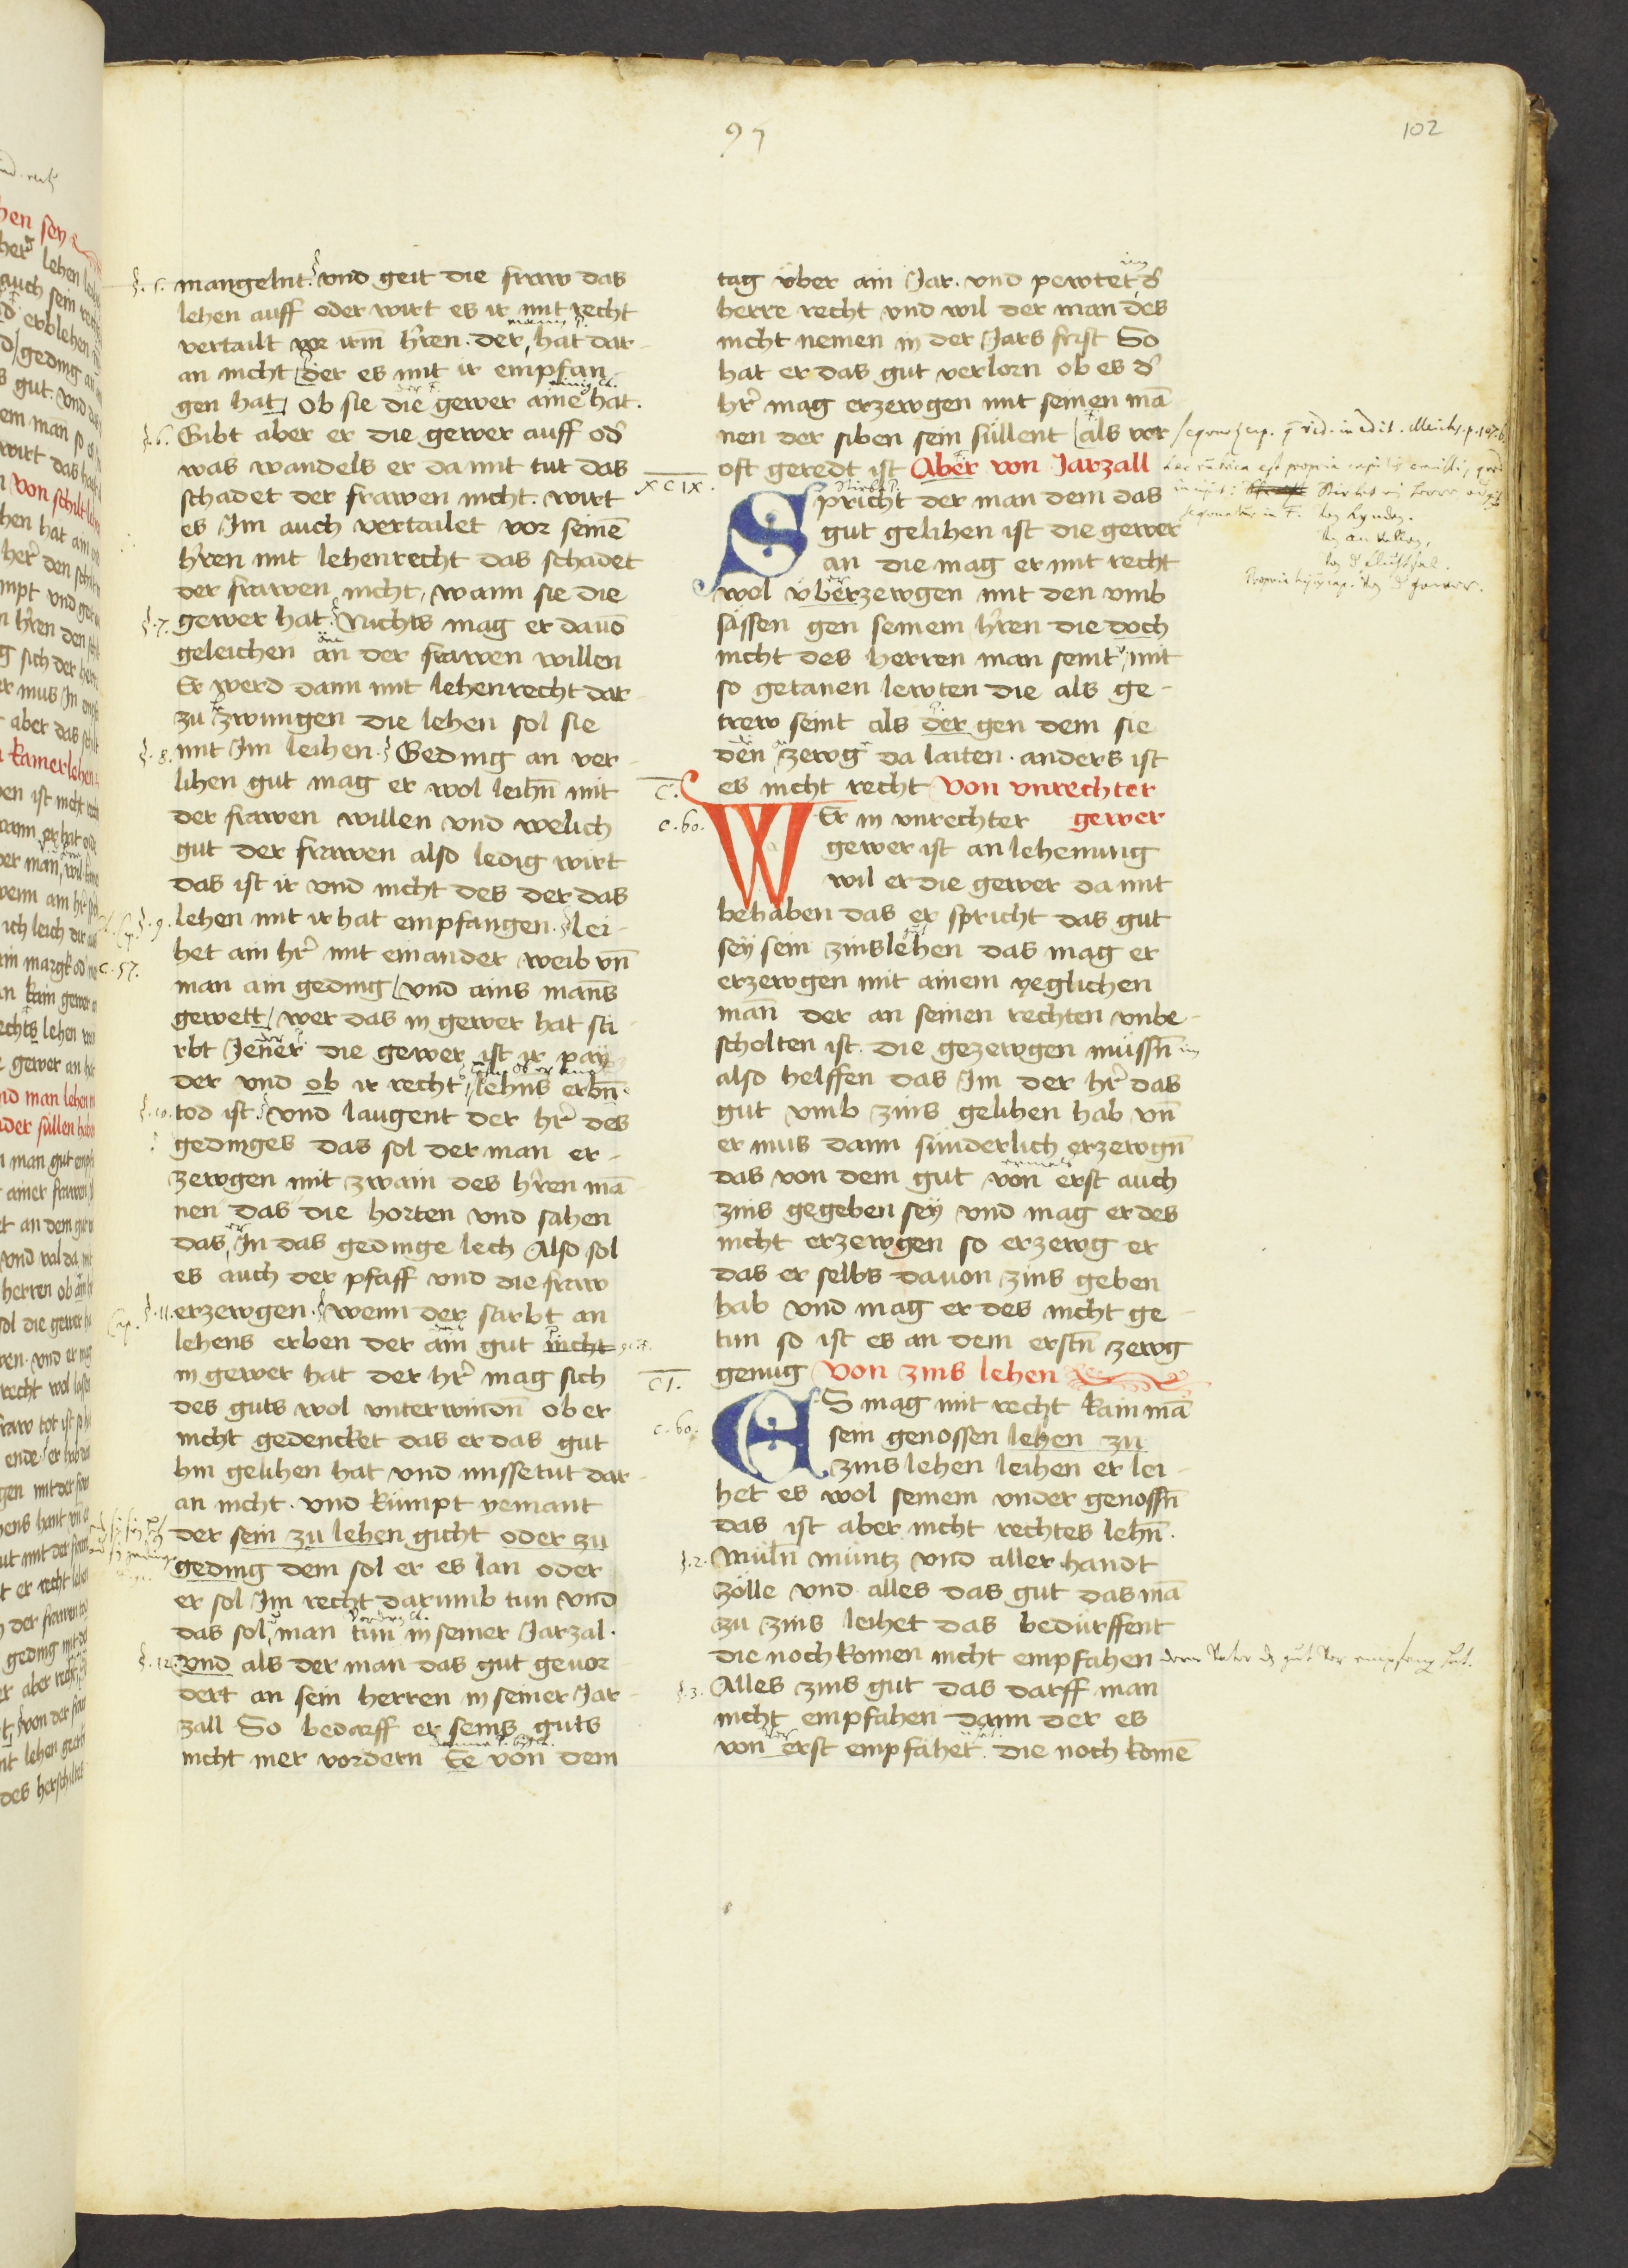 95
102
§.5. mangelnt. und geit die fraw das
lehen auff oder wirt es ir mit recht
vertailt vor irm h̄ren. der hat dar-
an nicht der es mit ir empfan-
gen hat ob sie die gewer aine hat.
§.6. Gibt aber er die gewer auff od̄
was wandels er da mit tut das
schadet der frawen nicht. wirt
es Im auch vertailet vor seinē
h̄ren mit lehenrecht das schadet
der frawen nicht, wann sie die
§.7. gewer hat. Nichts mag er dauō
geleichen an der frawen willen
Er werd dann mit lehenrecht dar-
zu zwungen die lehen sol sie
§.8. mit Im leihen. Geding an ver-
lihen gut mag er wol leihn̄ mit
der frawen willen vnd welich
gut der frawen also ledig wirt
das ist ir vnd nicht des der das
§.9. lehen mit ir hat empfangen. Lei-
c.57. het ain hr̄ mit einander weib vn̄
man ain geding vnd ains mans
gewett, wer das in gewer hat sti-
rbt Jener die gewer ist ir pay-
der vnd ob ir recht lehns erbn̄.
§.10. tod ist. vnd laugent der hr̄ des
gedinges das sol der man er-
zewgen mit zwain des h̄ren mā-
nen das die horten vnd sahen
das er In das gedinge lech Also sol
es auch der pfaff vnd die fraw
§.11. erzewgen. wenn der sarbt an
lehens erben der ain gut nicht
in gewer hat der hr̄ mag sich
des guts wol vnterwindn̄ ob er
nicht gedencket das er das gut
hin gelihen hat vnd missetut dar-
an nicht. vnd kumpt yemant
der sein zu lehen gicht oder zu
geding dem sol er es lan oder
er sol Im recht darumb tun vnd
das sol man tun in seiner Jarzal.
§.12. vnd als der man das gut geuor-
dert an sein herren in seiner Jar-
zall So bedarff er seins guts
nicht mer vordern Ee von dem
tag vber ain Jar. vnd pewtet im d̄
herre recht vnd wil der man des
nicht nemen in der Jars frist So
hat er das gut verlorn ob es d̄
hr̄ mag erzewgen mit seinen mā-
nen der siben sein sullent als vor
oft geredt ist Aber von Jarzall
XCIX.
Spricht der man dem das
gut gelihen ist die gewer
an die mag er mit recht
wol vberzewgen mit den vmb-
sässen gen seinem h̄ren die doch
nicht des herren man seint, mit
so getanen lewten die als ge-
trew seint als der gen dem sie
den zewg da laiten. anders ist
es nicht recht Von vnrechter
C.
c.60. WEr in vnrechter gewer
gewer ist an lehenung
wil er die gewer da mit
behaben das er spricht das gut
sey sein zinslehen das mag er
erzewgen mit ainem yeglichen
man der an seinen rechten vnbe-
scholten ist. die gezewgen müssn̄
also helffen das Im der hr̄ das
gut vmb zins gelihen hab vn̄
er mus dann sunderlich erzewgn̄
das von dem gut von erst auch
zins gegeben seÿ vnd mag er des
nicht erzewgen so erzewg er
das er selbs dauon zins geben
hab vnd mag er des nicht ge-
tun so ist es an dem erstn̄ zewg
genug Von zins lehen
CI.
c.60. ES mag mit recht kain mā
sein genossen lehen zu
zins lehen leihen er lei-
het es wol seinem vnder genossn̄
das ist aber nicht rechtes lehn̄.
§.2. Müln̄ müntz vnd aller handt
zölle vnd alles das gut das mā
zu zins leihet das bedürffent
die noch komen nicht empfahen
§.3. Alles zins gut das darff man
nicht empfahen dann der es
von erst empfahet. die noch komē